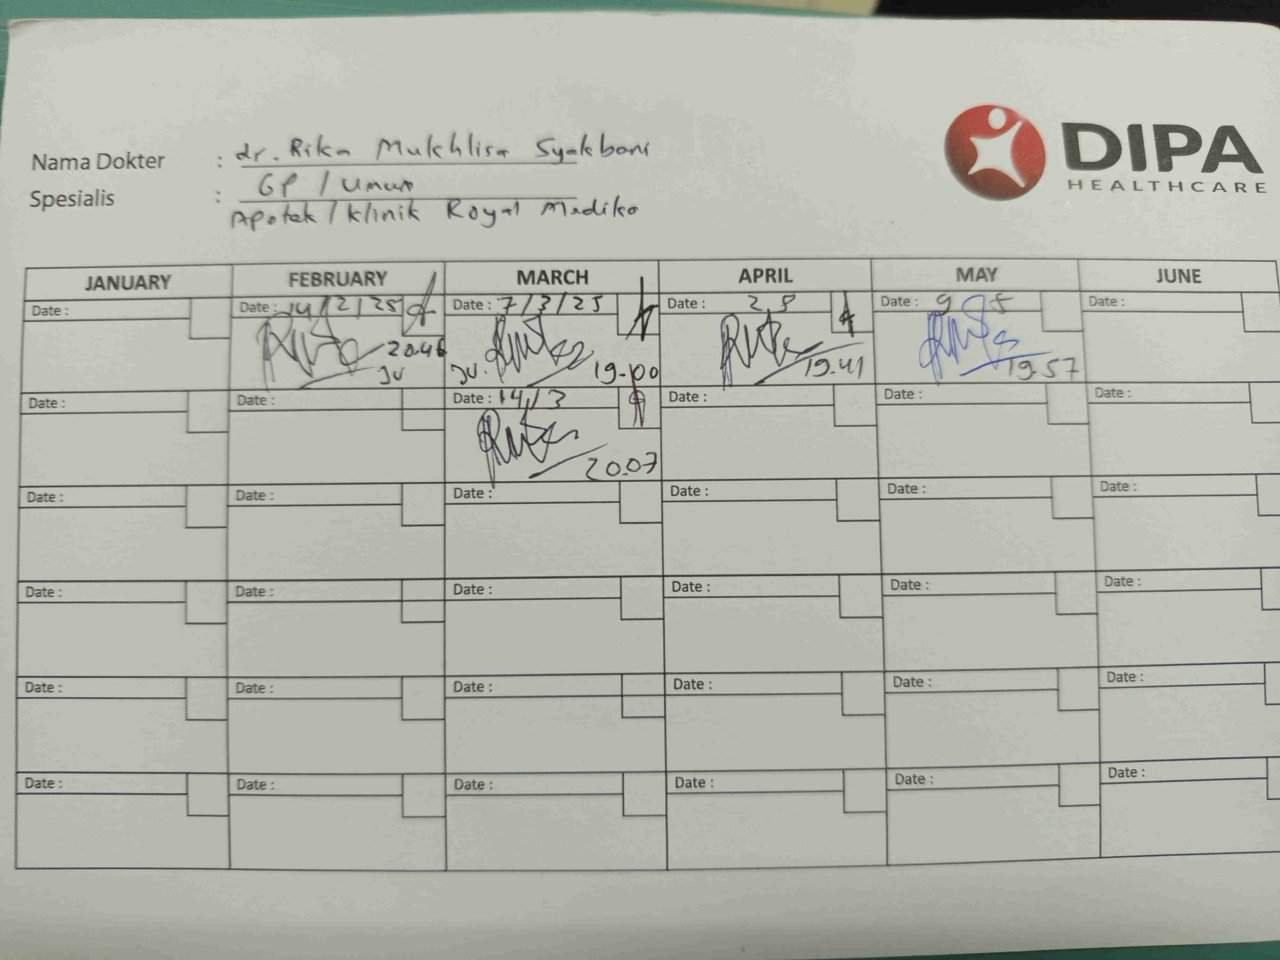 DIPA
HEALTHCARE
Nama Dokter : dr. Rika Mukhlisa Syakbani
Spesialis : GP / Umum
Apotek / Klinik Royal Medika
JANUARY FEBRUARY MARCH APRIL MAY JUNE
Date : Date : 14/2/25 Date : 7/3/25 Date : Date : 9 5 Date :
20.46 19.00 19.41 19.57
Date : Date : Date : 14/3 Date : Date : Date :
20.07
Date : Date : Date : Date : Date : Date :
Date : Date : Date : Date : Date : Date :
Date : Date : Date : Date : Date : Date :
Date : Date : Date : Date : Date : Date :